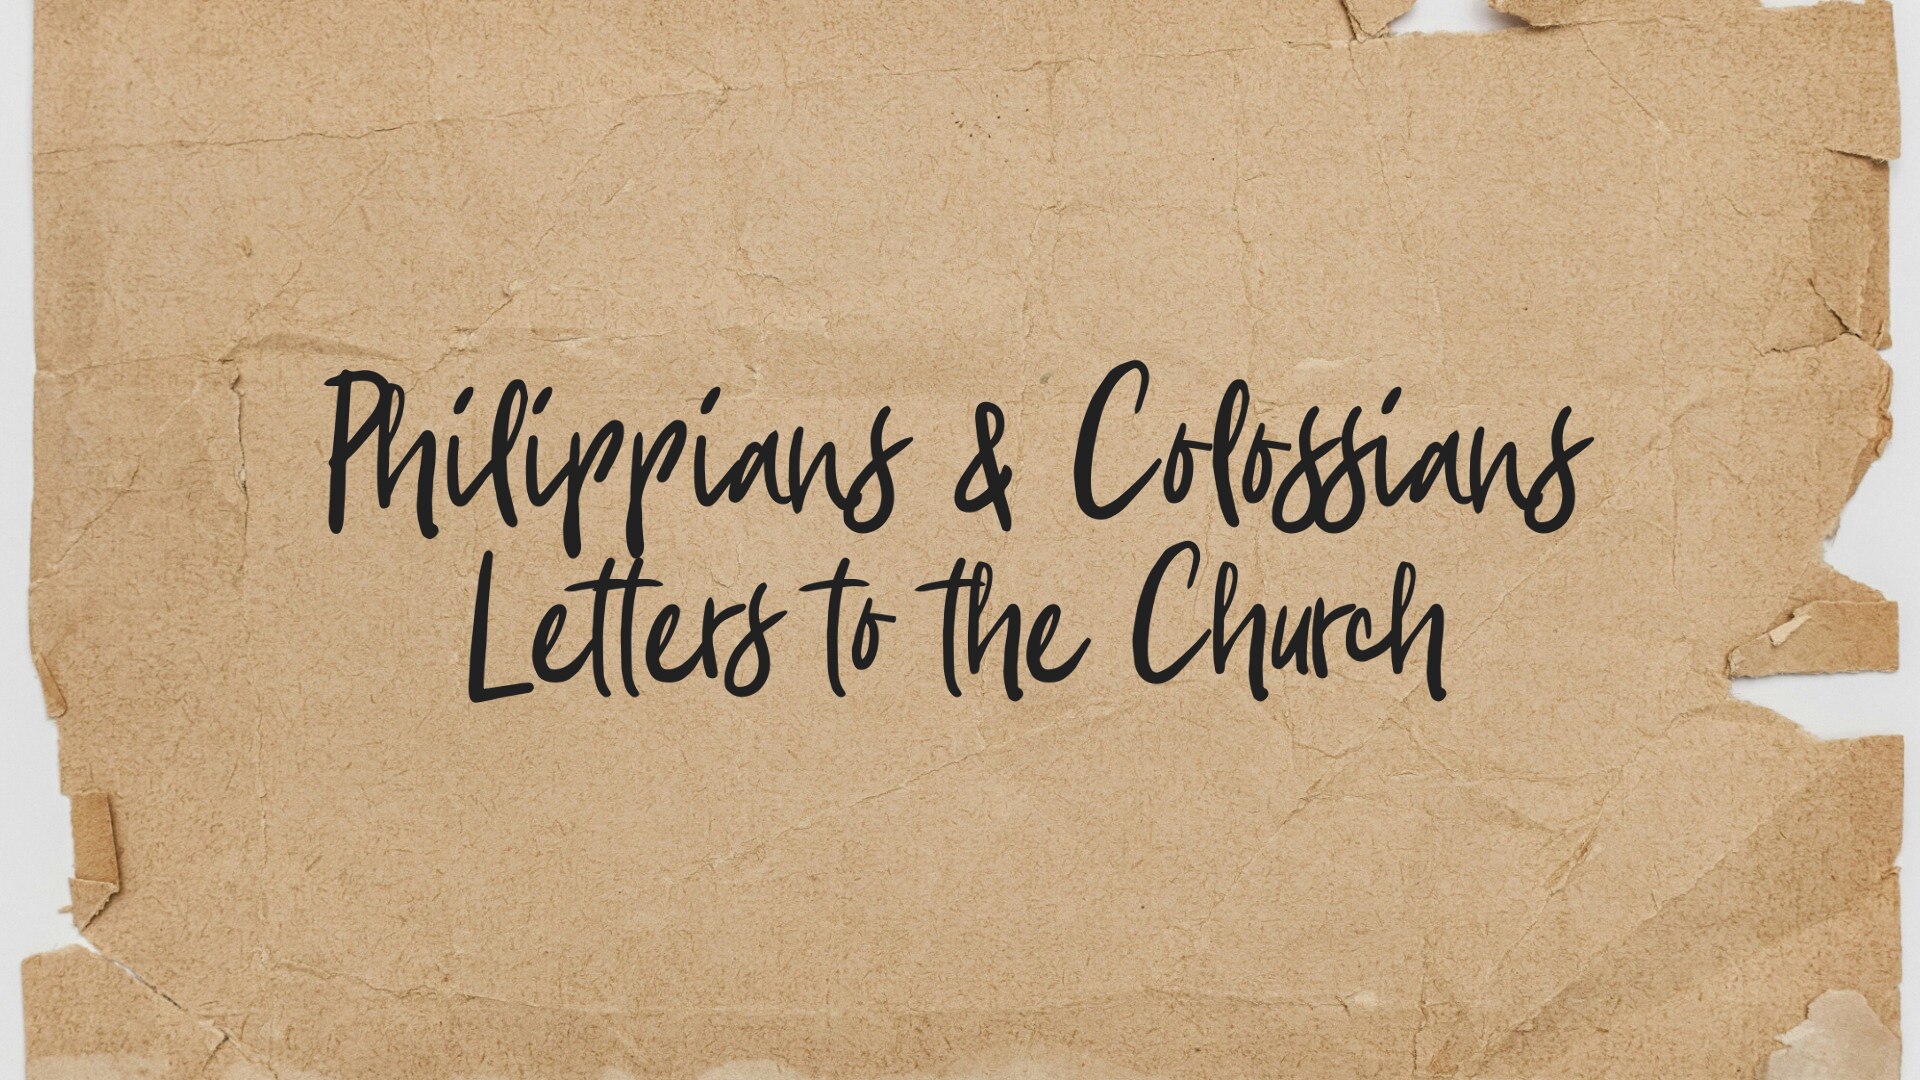 Philippians & Colossians
Letters to the Church